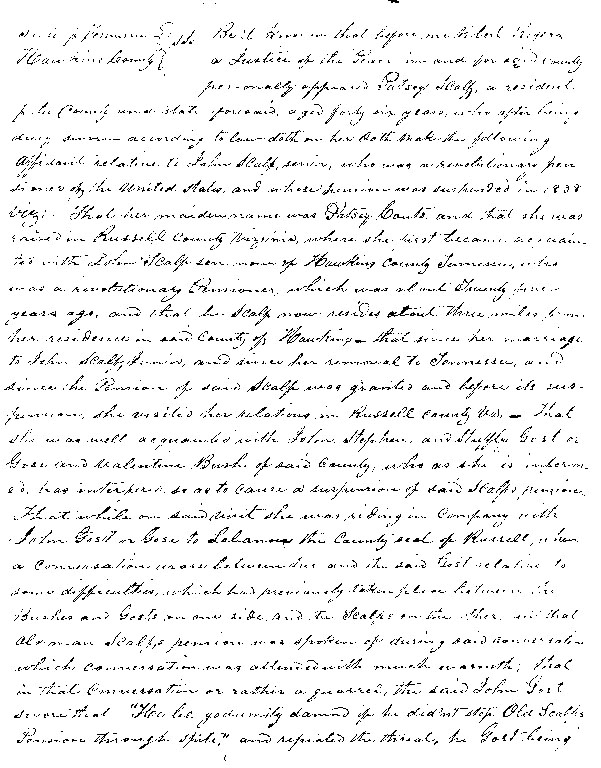 State of Tennessee } ss Be it known that before me Robert Rogers
Hawkins County { a Justice of the Peace in and for said County
personally appeared Patsey Scalf, a resident
of the County and state foresaid, aged forty six years, who after being
duly sworn according to law doth on her Oath make the following
Affidavit relative to John Scalf, senior, who was a revolutionary pen
sioner of the United States, and whose pension was suspended in 1838
That her maiden name was Patsey and that she was
raised in Russell County Virginia, where she first became acquain
ted with John Scalf sen. now of Hawkins County Tennessee, who
was a revolutionary Pensioner, which was about Twenty five
years ago, and that he Scalf now resides about three miles from
her residence in said County of Hawkins - that since her marriage
to John Scalf, Junior, and since her removal to Tennessee, and
since the Pension of said Scalf was granted and before its sus-
pension, she visited her relations in Russell County Va. - That
she was well acquainted with John, Stephen, and Gost or
Gose and Valentine Bush of said County, who as she is inform-
ed, has interfered so as to cause a suspension of said Scalfs pension.
That while on said visit she was riding in Company with
John Gost or Gose to Lebanon the County seat of Russell, when
a Conversation arose between her and the said Gost relative to
some difficulties, which had previously taken place between the
Bushes and Gosts on one side, and the Scalfs on the other, in that
Old man Scalfs pension was spoken of during said conversation
which conversation was attended with much warmth; That
in that Conversation or rather a quarrel, the said John Gost
swore that "He be godamity damnd if he didn't stop Old Scalfs
Pension through spite," and repeated the threat, he Gost being